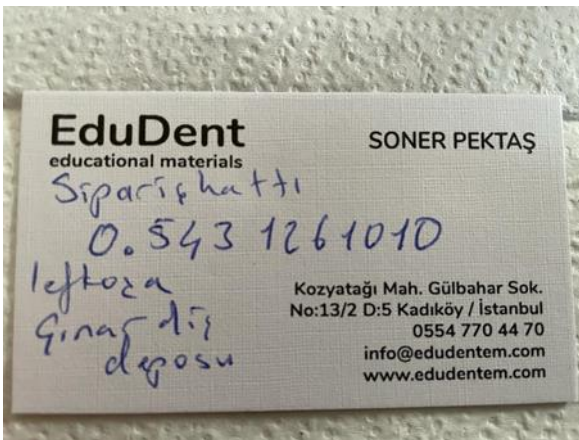 EduDent
educational materials
SONER PEKTAŞ
Sipariş hattı
0.543 1261010
lefkoşa
Çınar diş
deposu
Kozyatağı Mah. Gülbahar Sok.
No:13/2 D:5 Kadıköy / İstanbul
0554 770 44 70
info@edudentem.com
www.edudentem.com